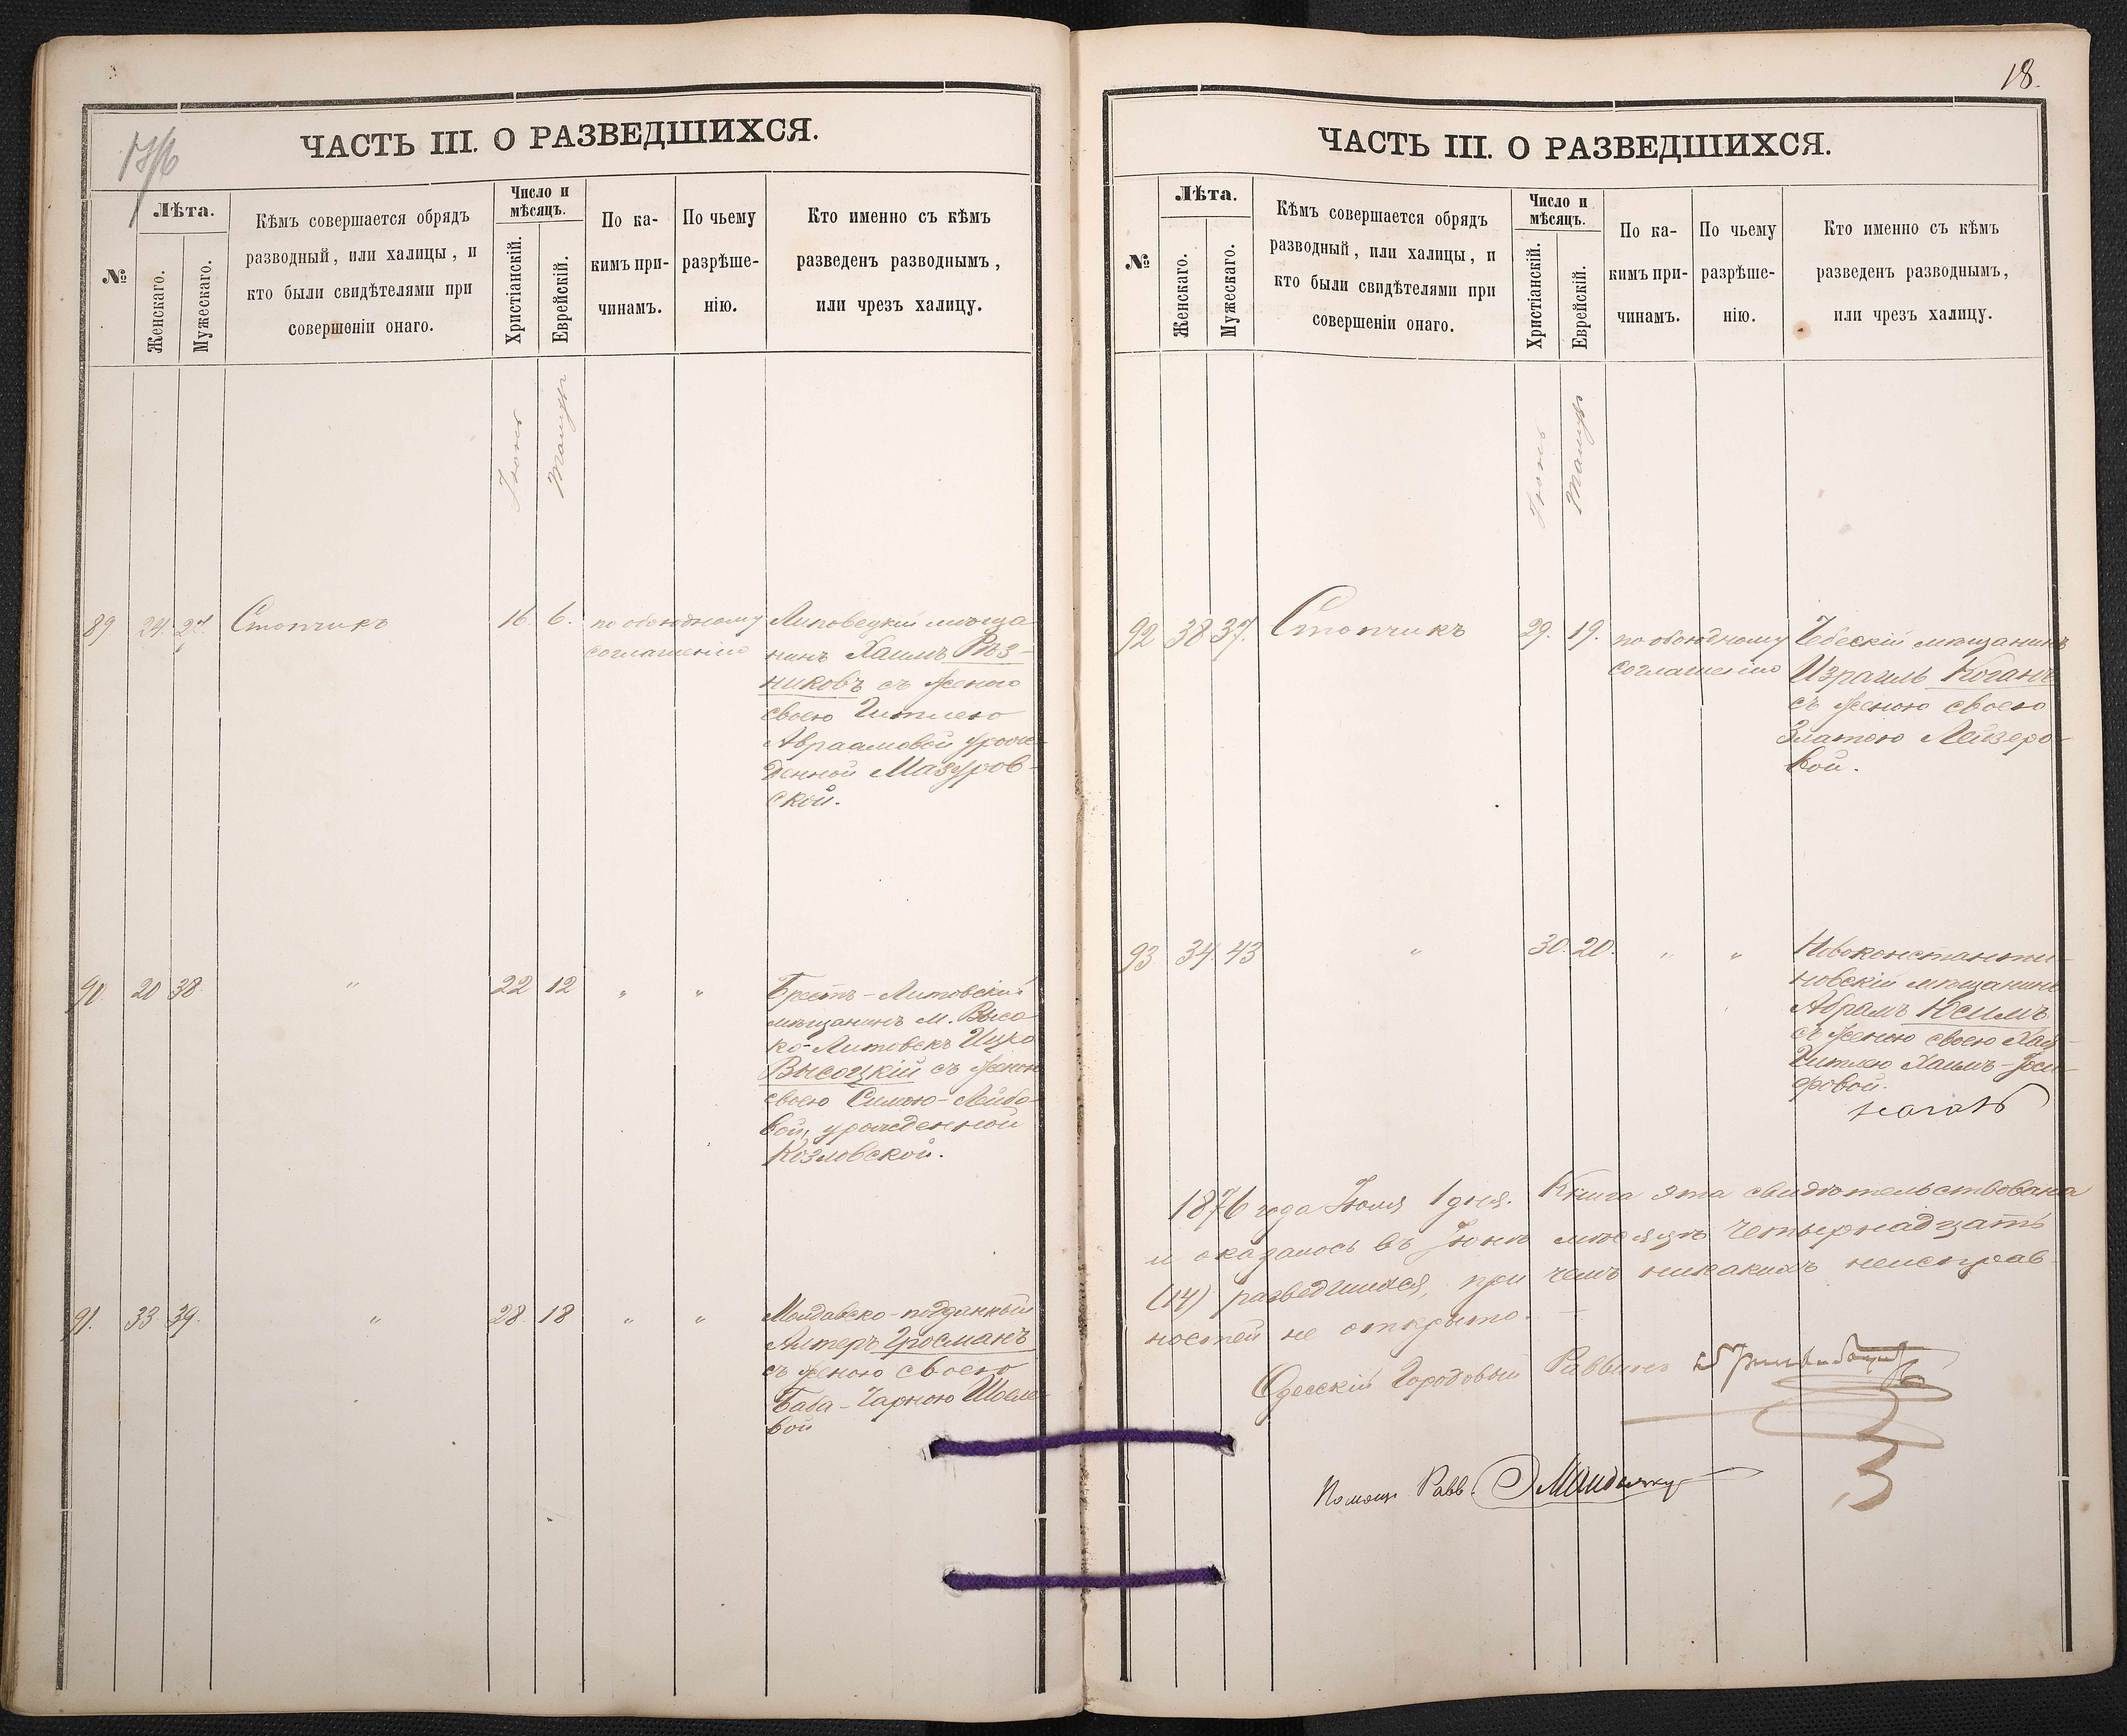 1876
ЧАСТЬ III. О РАЗВЕДШИХСЯ.
№
Лѣта.
Женскаго.
Мужескаго.
Кѣмъ совершается обрядъ
разводный, или халицы, и
кто были свидѣтелями при
совершеніи онаго.
Число и
мѣсяцъ.
Христіанскій.
Еврейскій.
По ка-
кимъ при-
чинамъ.
По чьему
разрѣше-
нію.
Кто именно съ кѣмъ
разведенъ разводнымъ,
или чрезъ халицу.
Іюнь
Тамузъ
89 24. 27. Стопчикъ 16. 6. по обоюдному
соглашенію
Липовецкій мѣща
нинъ Хаимъ Рѣз-
никовъ съ женою
своею Гитлею
Авраамовой урож-
денной Мазуров-
ской.
90. 20 38. " 22 12 " "
Брестъ-Литовскій
мѣщанинъ м. Высо
ко-Литовскъ Ицко
Высоцкій съ женою
своею Симою-Лейбо-
вой, урожденной
Козловской.
91. 33 39. " 28. 18 " "
Молдавско-подданный
Алтеръ Гросманъ
съ женою своею
Баба-Чарною Шоеле-
вой
18.
ЧАСТЬ III. О РАЗВЕДШИХСЯ.
№
Лѣта.
Женскаго.
Мужескаго.
Кѣмъ совершается обрядъ
разводный, или халицы, и
кто были свидѣтелями при
совершеніи онаго.
Число и
мѣсяцъ.
Христіанскій.
Еврейскій.
По ка-
кимъ при-
чинамъ.
По чьему
разрѣше-
нію.
Кто именно съ кѣмъ
разведенъ разводнымъ,
или чрезъ халицу.
Іюнь
Тамузъ
92 38 37. Стопчикъ 29. 19. по обоюдному
соглашенію
мѣщанинъ
Израиль Коганъ
съ женою своею
Златою Лейзеро-
вой.
93 34. 43 " 30. 20. " "
Новоконстанти-
новскій мѣщанинъ
Абрамъ Юсимъ
съ женою своею Хая-
Гитлею Хаимъ-Іоси-
фовой.
1876 года Іюля 1 дня. Книга эта свидѣтельствована
и оказалось въ Іюнѣ мѣсяцѣ четырнадцать
(14) разведшихся, при чемъ никакихъ неисправ-
ностей не открыто.
Одесскій Городовой Раввинъ
Помощ. Равв.